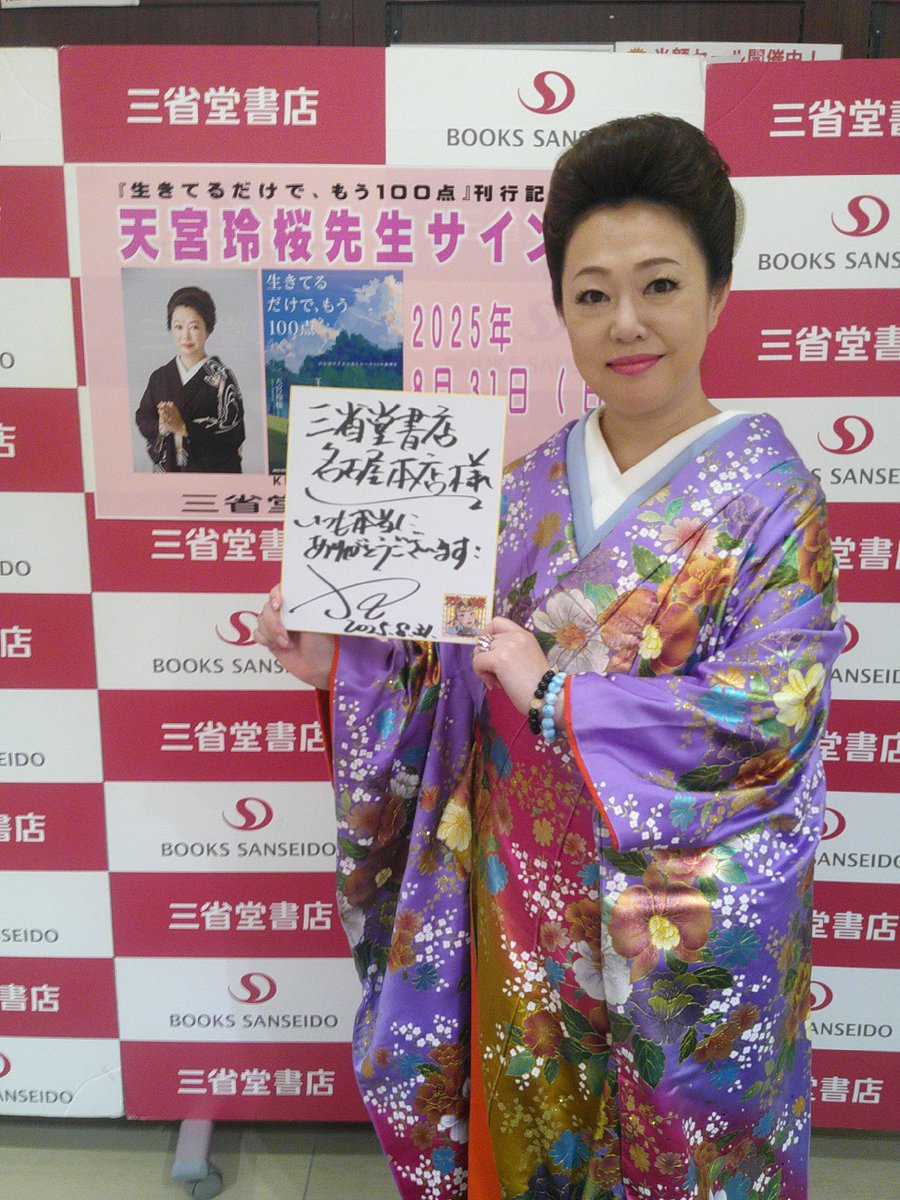 半額セール開催中！
三省堂書店
BOOKS SANSEIDO
三省堂書店
『生きてるだけで、もう100点』刊行記
天宮玲桜先生サイン
生きてる
だけで、もう
100点
天宮玲桜
2025年
8月31日（日
三省堂
三省堂書店
名古屋本店様
いつも本当に
ありがとうございます：
2025.8.31.
BOOKS SANSEIDO
三省堂書店
BOOKS SANSEIDO
三省堂書店
BOOKS SANSEIDO
三省堂書店
BOOKS SANSEIDO
三省堂書店
BOOKS SANSEIDO
三省堂書店
BOOKS SANSEIDO
三省堂書店